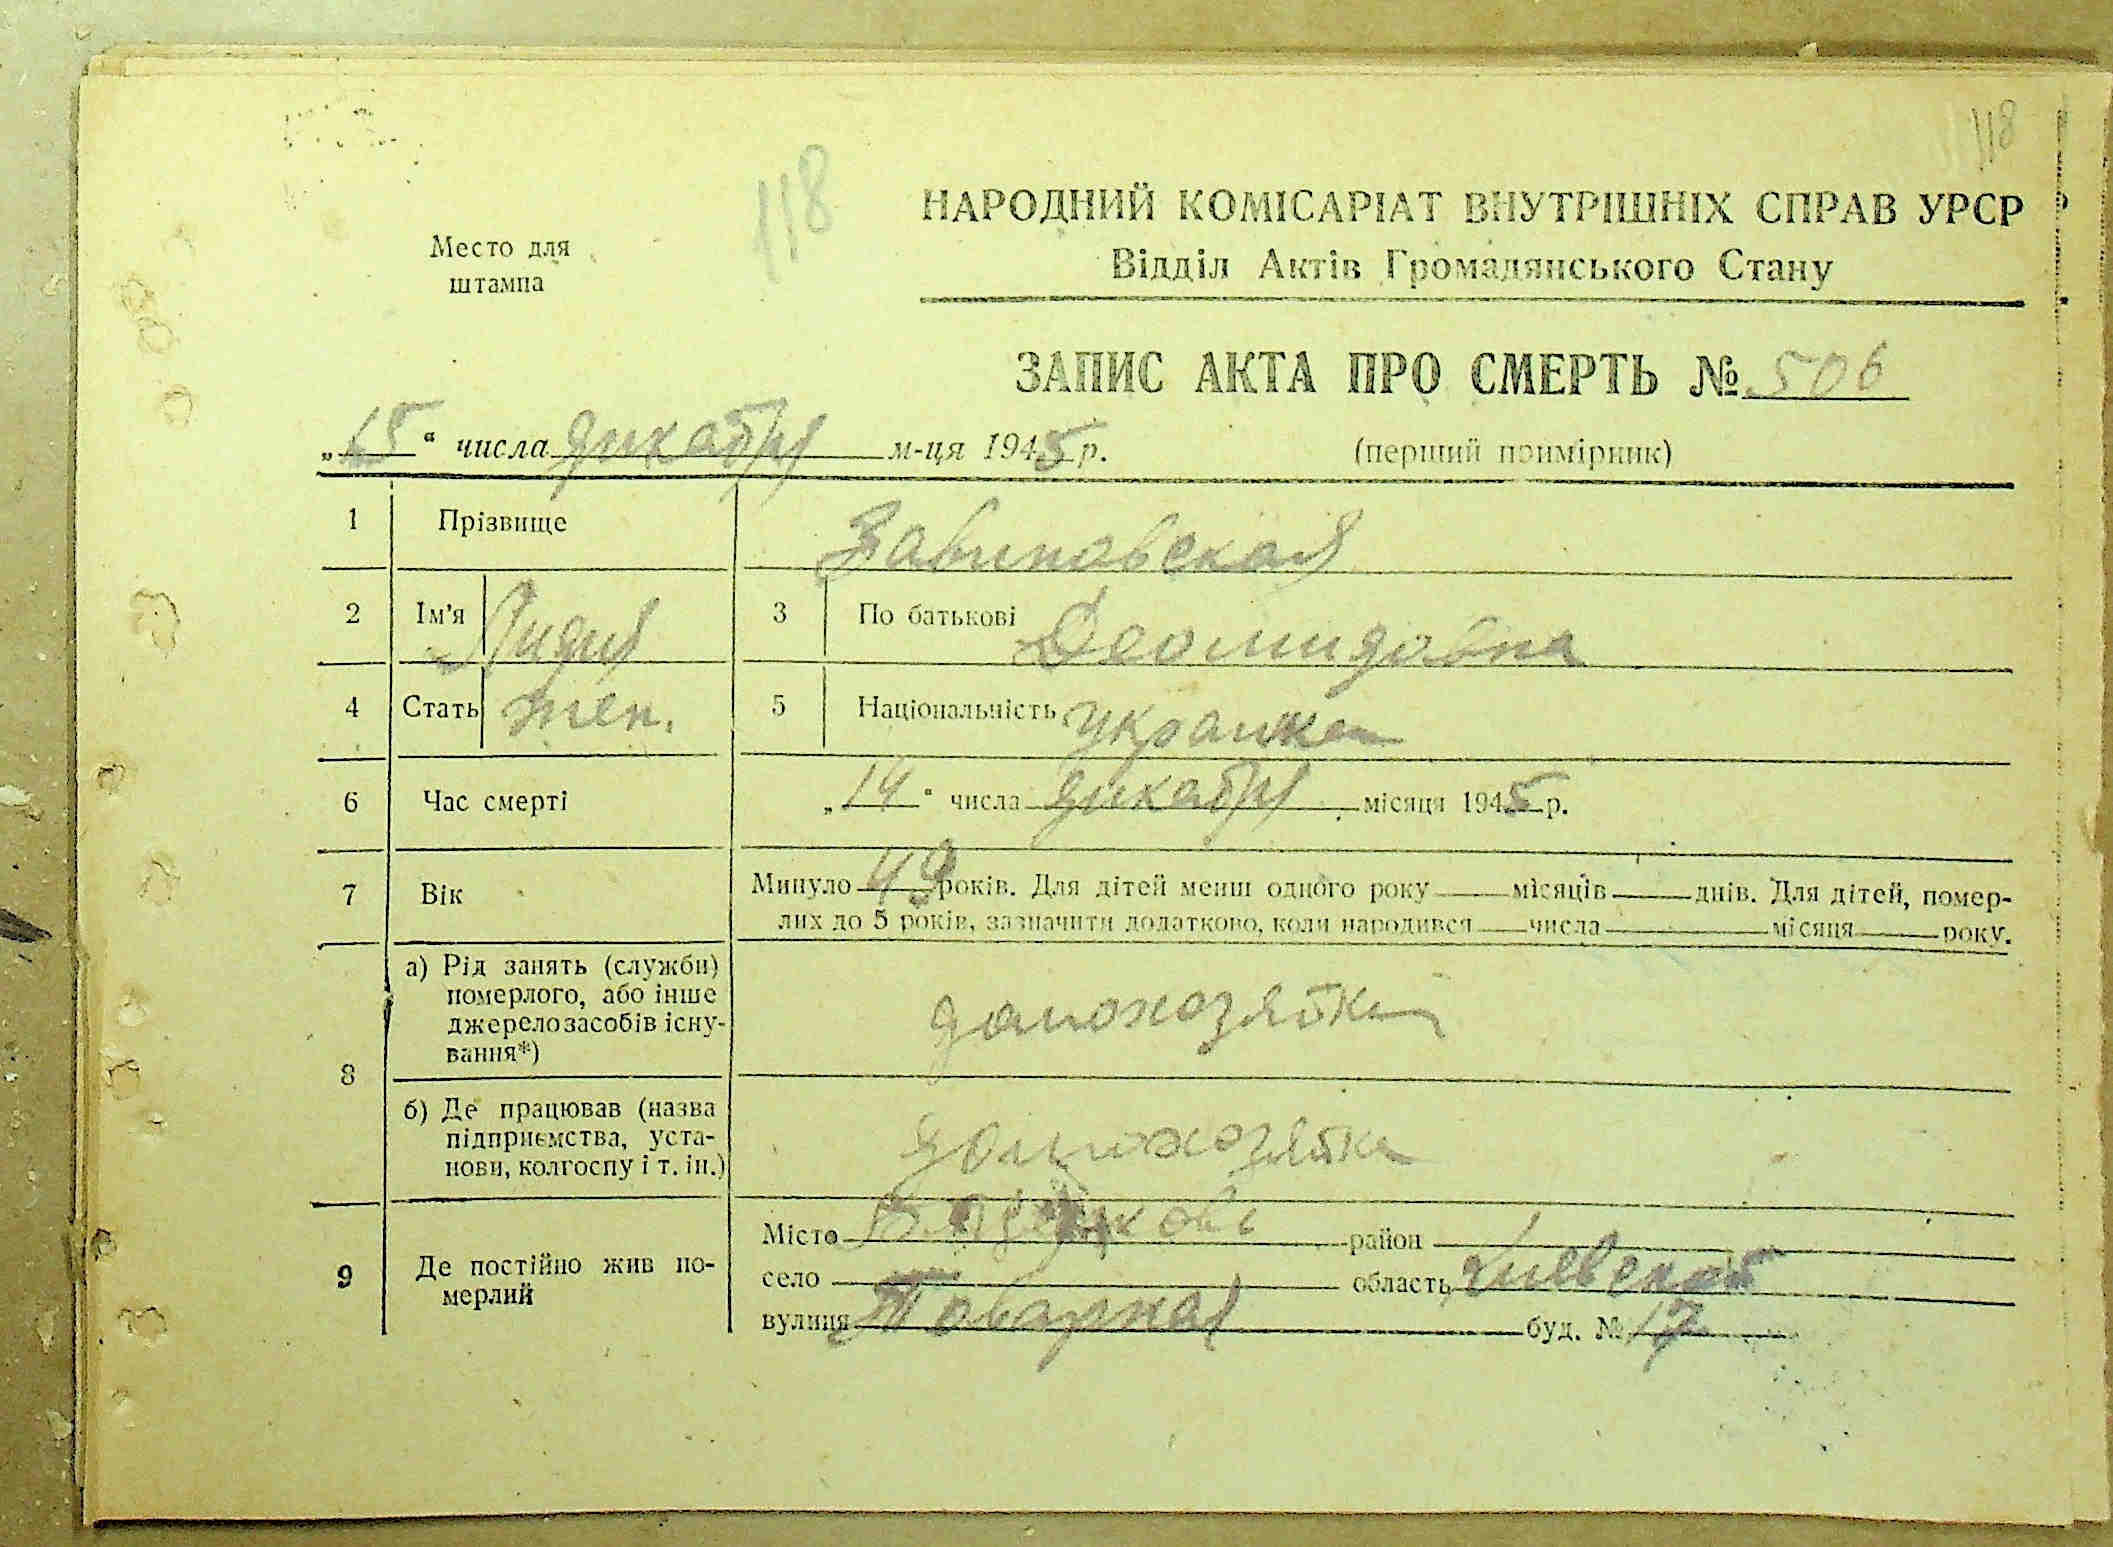 118
118
Место для
штампа
НАРОДНИЙ КОМІСАРІАТ ВНУТРІШНІХ СПРАВ УРСР
Відділ Актів Громадянського Стану
ЗАПИС АКТА ПРО СМЕРТЬ № 506
„15“ числа декабря м-ця 1945 р. (перший примірник)
1 Прізвище
2 Ім'я Лидия 3 По батькові Деомидовна
4 Стать жен. 5 Національність украинка
6 Час смерті „14“ числа декабря місяця 1945 р.
7 Вік Минуло 49 років. Для дітей менш одного року місяців днів. Для дітей, помер-
лих до 5 років, зазначити додатково, коли народився числа місяця року.
8 а) Рід занять (служби)
померлого, або інше
джерело засобів існу-
вання*) домохозяйка
б) Де працював (назва
підприємства, уста-
нови, колгоспу і т. ін.) домохозяйка
9 Де постійно жив по-
мерлий
Місто район
село область Киевская
вулиця Товарная буд. № 17